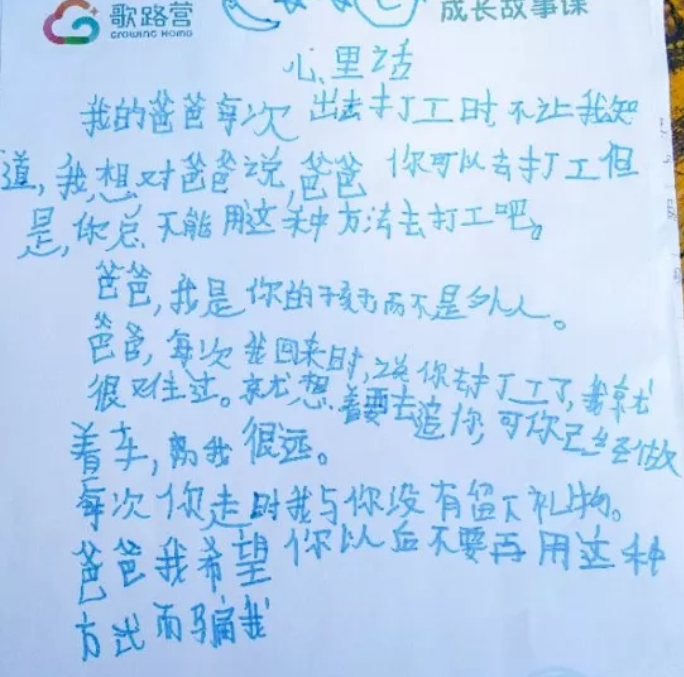 歌路营 成长故事课
GROWING HOME
心里话
我的爸爸每次出去打工时不让我知
道,我想对爸爸说,爸爸你可以去打工但
是,你总不能用这种方法去打工吧。
爸爸,我是你的孩子而不是外人。
爸爸,每次我回来时,说你去打工了,我就
很难过。就想着要去追你,可你已经做
着车,离我很远。
每次你走时我与你没有留下礼物。
爸爸我希望你以后不要再用这种
方式而骗我